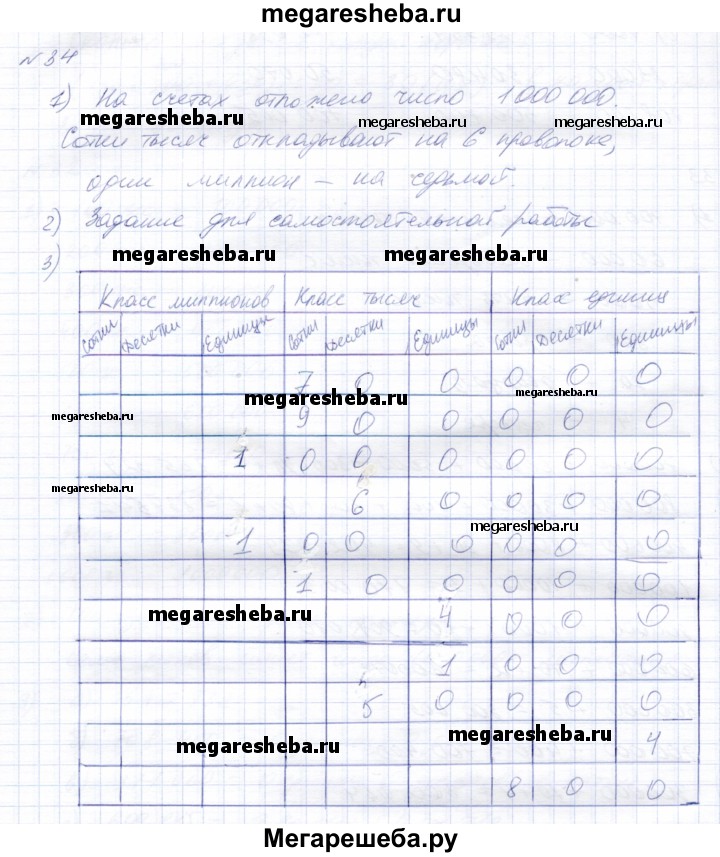 megaresheba.ru
№ 34
1) На счетах отложено число 1 000 000.
megaresheba.ru megaresheba.ru megaresheba.ru
Сотни тысяч откладывают на 6 проволоке,
один миллион – на седьмой.
2) Задание для самостоятельной работы
megaresheba.ru megaresheba.ru
3)
Класс миллионов Класс тысяч Класс единиц
Сотни Десятки Единицы Сотни Десятки Единицы Сотни Десятки Единицы
7 0 0 0 0 0
megaresheba.ru megaresheba.ru
megaresheba.ru 9 0 0 0 0 0
1 0 0 0 0 0 0
megaresheba.ru 6 0 0 0 0
megaresheba.ru
1 0 0 0 0 0 0
1 0 0 0 0 0
megaresheba.ru 4 0 0 0
1 0 0 0
5 0 0 0 0
megaresheba.ru megaresheba.ru 4
8 0 0
Мегарешеба.ру